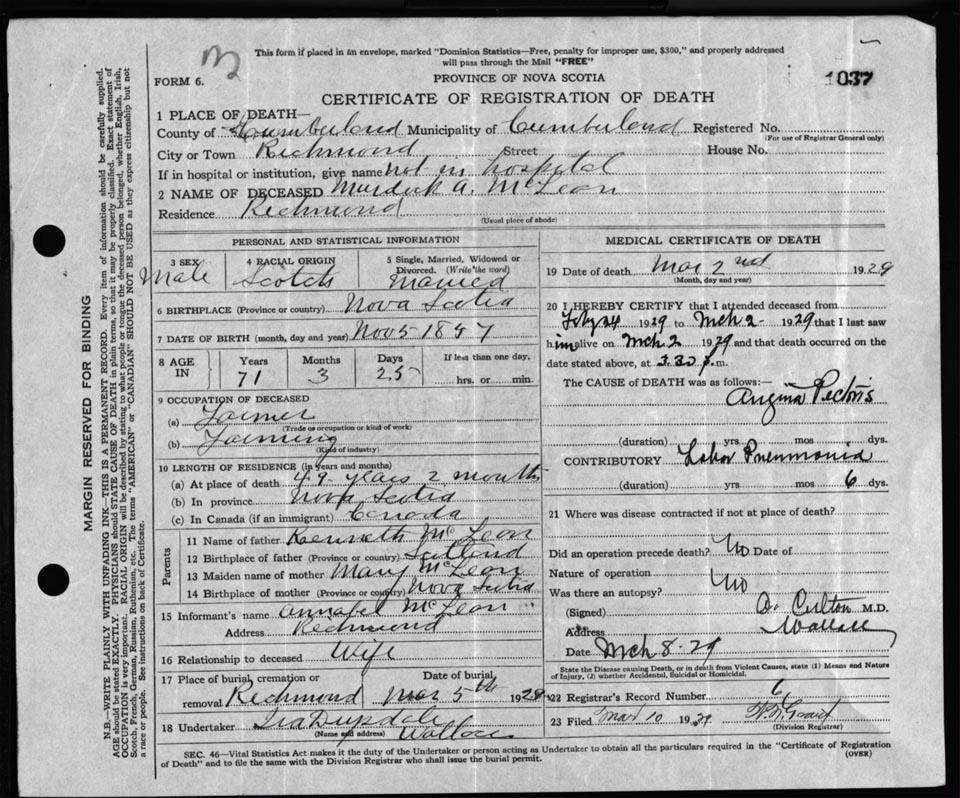 This form if placed in an envelope, marked "Dominion Statistics—Free, penalty for improper use, $300," and properly addressed
will pass through the Mail "FREE"
FORM 6.
PROVINCE OF NOVA SCOTIA
1037
CERTIFICATE OF REGISTRATION OF DEATH
1 PLACE OF DEATH—
County of Cumberland Municipality of Cumberland Registered No.
(For use of Registrar General only)
City or Town Richmond Street House No.
If in hospital or institution, give name not in hospital
2 NAME OF DECEASED Murdock A. McLean
Residence Richmond
(Usual place of abode)
PERSONAL AND STATISTICAL INFORMATION
3 SEX Male
4 RACIAL ORIGIN Scotch
5 Single, Married, Widowed or Divorced. (Write the word) Married
6 BIRTHPLACE (Province or country) Nova Scotia
7 DATE OF BIRTH (month, day and year) Nov 5 1857
8 AGE IN Years 71 Months 3 Days 25 If less than one day. hrs. or min.
9 OCCUPATION OF DECEASED
(a) Farmer
(Trade or occupation or kind of work)
(b) Farming
(Kind of industry)
10 LENGTH OF RESIDENCE (in years and months)
(a) At place of death 49 years 2 months
(b) In province Nova Scotia
(c) In Canada (if an immigrant) Canada
Parents
11 Name of father Kenneth McLean
12 Birthplace of father (Province or country) Scotland
13 Maiden name of mother Mary McLean
14 Birthplace of mother (Province or country) Nova Scotia
15 Informant's name Annabel McLean
Address Richmond
16 Relationship to deceased Wife
17 Place of burial, cremation or removal Richmond Date of burial Mar 5th 1929
18 Undertaker Wallace
(Name and address)
MEDICAL CERTIFICATE OF DEATH
19 Date of death Mar 2nd 1929
(Month, day and year)
20 I HEREBY CERTIFY that I attended deceased from
Feby 24 1929 to Mch 2 1929 that I last saw
him alive on Mch 2 1929 and that death occurred on the
date stated above, at 3.30 p.m.
The CAUSE of DEATH was as follows:—
Angina Pectoris
(duration) yrs mos dys.
CONTRIBUTORY Lobar Pneumonia
(duration) yrs mos 6 dys.
21 Where was disease contracted if not at place of death?
Did an operation precede death? No Date of
Nature of operation
Was there an autopsy? No
(Signed) M.D.
Address Wallace
Date Mch 8-29
State the Disease causing Death, or in death from Violent Causes, state (1) Means and Nature
of Injury, (2) whether Accidental, Suicidal or Homicidal.
22 Registrar's Record Number 6
23 Filed Mar 10 1929
(Division Registrar)
SEC. 46—Vital Statistics Act makes it the duty of the Undertaker or person acting as Undertaker to obtain all the particulars required in the "Certificate of Registration
of Death" and to file the same with the Division Registrar who shall issue the burial permit.
(OVER)
MARGIN RESERVED FOR BINDING
N.B.—WRITE PLAINLY WITH UNFADING INK—THIS IS A PERMANENT RECORD. Every item of information should be carefully supplied.
AGE should be stated EXACTLY. PHYSICIANS should STATE CAUSE OF DEATH in plain terms, so that it may be properly classified. Exact statement of
OCCUPATION is very important. RACIAL ORIGIN will be described by stating to what people or tongue the deceased person belonged, whether English, Irish,
Scotch, French, German, Russian, Ruthenian, etc. The terms "AMERICAN" or "CANADIAN" SHOULD NOT BE USED as they express citizenship but not
a race or people. See instructions on back of Certificate.